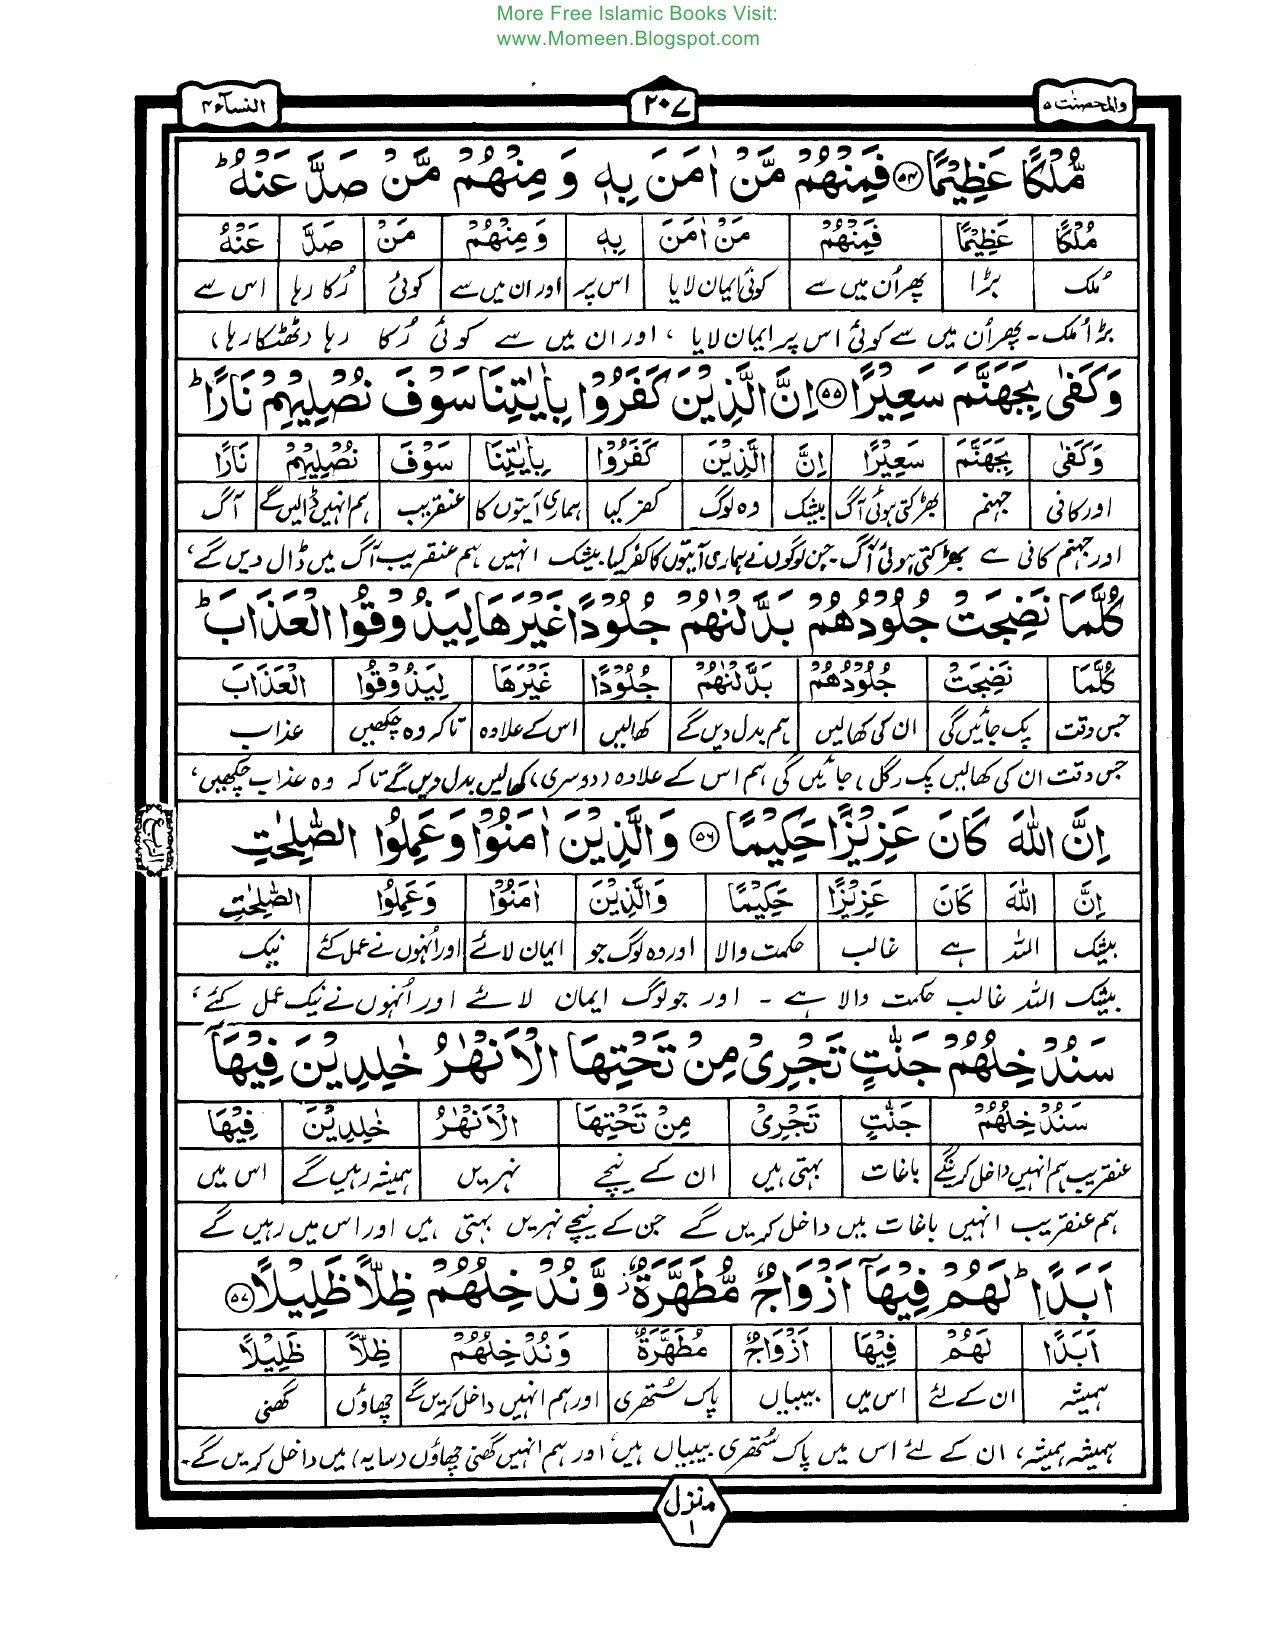 More Free Islamic Books Visit:
www.Momeen.Blogspot.com
والمحصنٰت ۵ ۲۰۷ النسآء ۴
مُّلْكًا عَظِيْمًا ﴿۵۴﴾ فَمِنْهُمْ مَّنْ اٰمَنَ بِهٖ وَ مِنْهُمْ مَّنْ صَدَّ عَنْهُ ؕ
مُلْكًا عَظِيْمًا فَمِنْهُمْ مَنْ اٰمَنَ بِهٖ وَ مِنْهُمْ مَنْ صَدَّ عَنْهُ
مُلک بڑا پھر اُن میں سے کوئی ایمان لایا اس پر اور ان میں سے کوئی رُکا رہا اس سے
بڑا مُلک ۔ پھر اُن میں سے کوئی اس پر ایمان لایا ، اور ان میں سے کوئی رُکا رہا (ٹھٹکا رہا)
وَ كَفٰى بِجَهَنَّمَ سَعِيْرًا ﴿۵۵﴾ اِنَّ الَّذِيْنَ كَفَرُوْا بِاٰيٰتِنَا سَوْفَ نُصْلِيْهِمْ نَارًا ؕ
وَ كَفٰى بِجَهَنَّمَ سَعِيْرًا اِنَّ الَّذِيْنَ كَفَرُوْا بِاٰيٰتِنَا سَوْفَ نُصْلِيْهِمْ نَارًا
اور کافی جہنم بھڑکتی ہوئی آگ بیشک وہ لوگ کفر کیا ہماری آیتوں کا عنقریب ہم انہیں ڈالیں گے آگ
اور جہنم کافی ہے بھڑکتی ہوئی آگ۔ جن لوگوں نے ہماری آیتوں کا کفر کیا بیشک انہیں ہم عنقریب آگ میں ڈال دیں گے ،
كُلَّمَا نَضِجَتْ جُلُوْدُهُمْ بَدَّلْنٰهُمْ جُلُوْدًا غَيْرَهَا لِيَذُوْقُوا الْعَذَابَ ؕ
كُلَّمَا نَضِجَتْ جُلُوْدُهُمْ بَدَّلْنٰهُمْ جُلُوْدًا غَيْرَهَا لِيَذُوْقُوا الْعَذَابَ
جس وقت پک جائیں گی ان کی کھالیں ہم بدل دیں گے کھالیں اس کے علاوہ تاکہ وہ چکھیں عذاب
جس وقت ان کی کھالیں پک (گل) جائیں گی ہم اس کے علاوہ (دوسری) کھالیں بدل دیں گے تاکہ وہ عذاب چکھیں ،
الربع
اِنَّ اللّٰهَ كَانَ عَزِيْزًا حَكِيْمًا ﴿۵۶﴾ وَالَّذِيْنَ اٰمَنُوْا وَ عَمِلُوا الصّٰلِحٰتِ
اِنَّ اللّٰهَ كَانَ عَزِيْزًا حَكِيْمًا وَالَّذِيْنَ اٰمَنُوْا وَ عَمِلُوا الصّٰلِحٰتِ
بیشک اللہ ہے غالب حکمت والا اور وہ لوگ جو ایمان لائے اور اُنہوں نے عمل کئے نیک
بیشک اللہ غالب حکمت والا ہے ۔ اور جو لوگ ایمان لائے اور اُنہوں نے نیک عمل کئے ،
سَنُدْخِلُهُمْ جَنّٰتٍ تَجْرِىْ مِنْ تَحْتِهَا الْاَنْهٰرُ خٰلِدِيْنَ فِيْهَاۤ
سَنُدْخِلُهُمْ جَنّٰتٍ تَجْرِىْ مِنْ تَحْتِهَا الْاَنْهٰرُ خٰلِدِيْنَ فِيْهَا
عنقریب ہم انہیں داخل کرینگے باغات بہتی ہیں ان کے نیچے نہریں ہمیشہ رہیں گے اس میں
ہم عنقریب انہیں باغات میں داخل کریں گے جن کے نیچے نہریں بہتی ہیں اور اس میں رہیں گے
اَبَدًا ؕ لَهُمْ فِيْهَاۤ اَزْوَاجٌ مُّطَهَّرَةٌ ز وَّ نُدْخِلُهُمْ ظِلًّا ظَلِيْلًا ﴿۵۷﴾
اَبَدًا لَهُمْ فِيْهَا اَزْوَاجٌ مُطَهَّرَةٌ وَ نُدْخِلُهُمْ ظِلًّا ظَلِيْلًا
ہمیشہ ان کے لئے اس میں بیبیاں پاک سُتھری اور ہم انہیں داخل کریں گے چھاؤں گھنی
ہمیشہ ہمیشہ ، ان کے لئے اس میں پاک سُتھری بیبیاں ہیں ، اور ہم انہیں گھنی چھاؤں (سایہ) میں داخل کریں گے ۔
منزل ۱